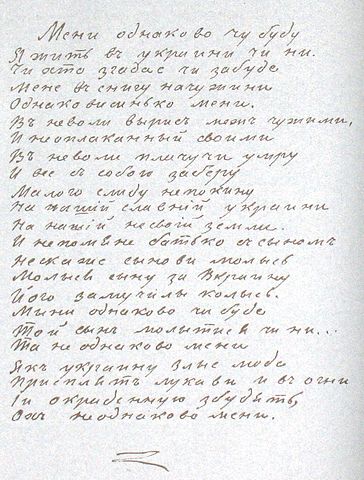 Мени однаково чи буду
Я жить въ украини чи ни.
Чи хто згадає чи забуде
Мене въ снигу на чужини
Однаковисинько мени.
Въ неволи вырисъ межъ чужими,
И неоплаканный своими
Въ неволи плачучи умру
И все съ собою заберу
Малого слиду непокину
На нашій славній украини
На нашій несвоій земли.
И непомяне батько съ сыномъ
Нескаже сынови молысь
Молысь сыну за Вкраину
Його замучилы колысь.
Мыни однаково чи буде
Той сынъ молытися чи ни...
Та не однаково мени
Якъ украину злые люде
Присплять лукави и въ огни
Іи окраденную збудять,
Охъ неоднаково мени.